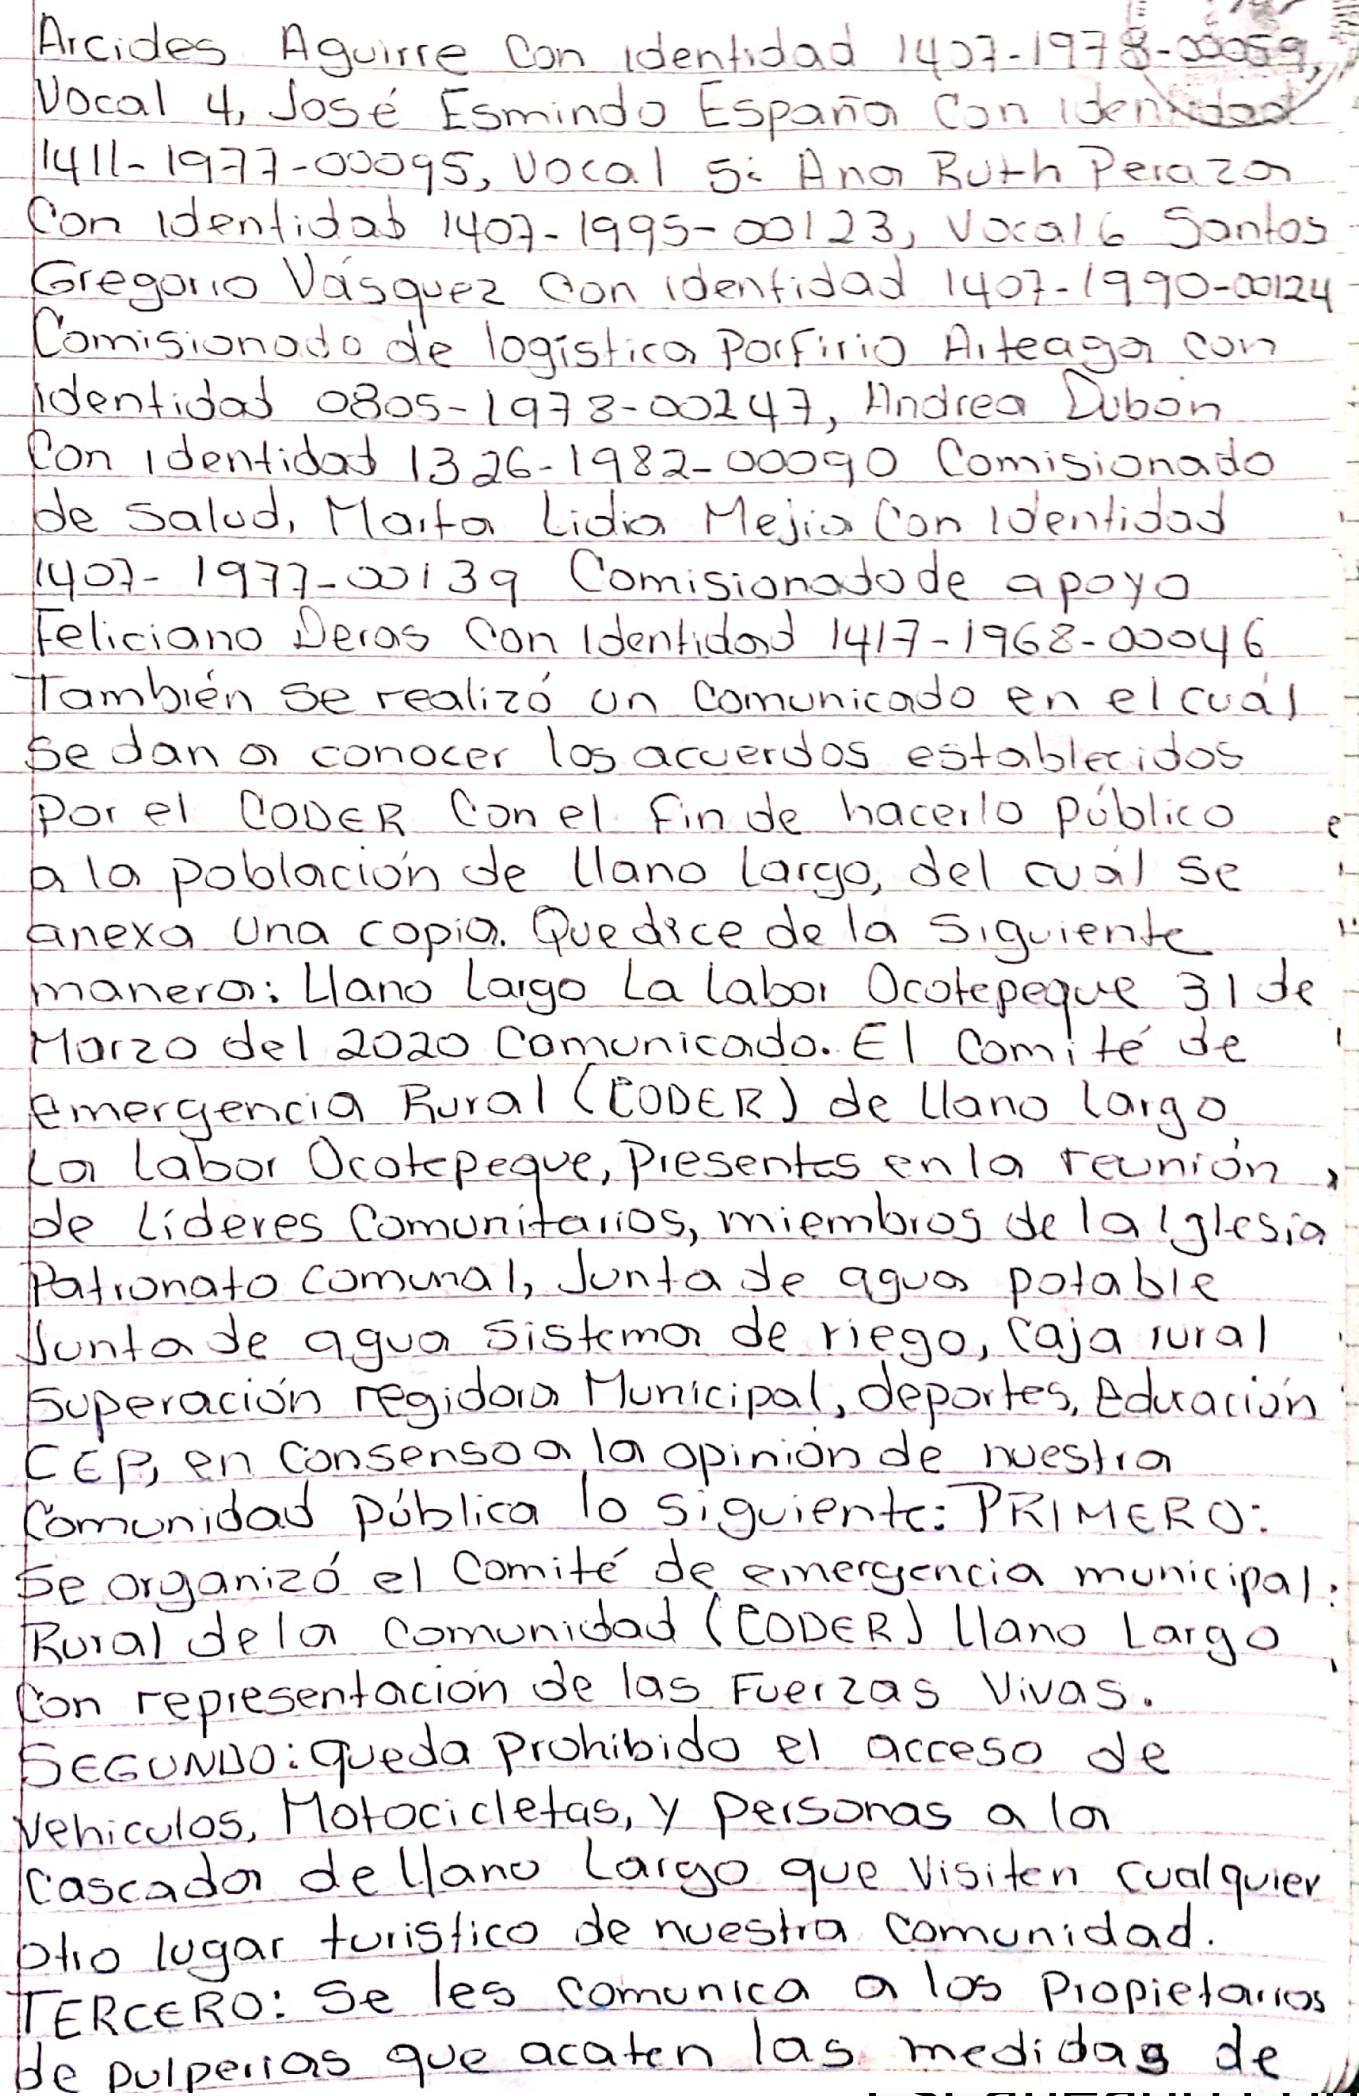 Arcides Aguirre Con identidad 1407-1978-00059,
Vocal 4, José Esmindo España Con identidad
1411-1977-00095, Vocal 5: Ana Ruth Peraza
Con identidad 1407-1995-00123, Vocal 6 Santos
Gregorio Vásquez Con identidad 1407-1990-00124
Comisionado de logística Porfirio Arteaga con
identidad 0805-1978-00247, Andrea Dubón
Con identidad 1326-1982-00090 Comisionado
de Salud, Marta Lidia Mejia Con identidad
1407-1977-00139 Comisionado de apoyo
Feliciano Deras Con identidad 1417-1968-00046
También se realizó un comunicado en el cuál
Se dan a conocer los acuerdos establecidos
Por el CODER Con el fin de hacerlo público
a la población de llano largo, del cuál se
anexa una copia. Que dice de la siguiente
manera: Llano largo La labor Ocotepeque 31 de
Marzo del 2020 Comunicado. El Comité de
emergencia Rural (CODER) de llano largo,
La labor Ocotepeque, Presentes en la reunión
de líderes Comunitarios, miembros de la iglesia
Patronato comunal, Junta de agua potable
Junta de agua sistema de riego, Caja rural
Superación regidora Municipal, deportes, Educación
CEP, en Consenso a la opinión de nuestra
Comunidad Pública lo siguiente: PRIMERO:
Se organizó el Comité de emergencia municipal:
Rural de la Comunidad (CODER) llano Largo
Con representación de las Fuerzas Vivas.
SEGUNDO: queda Prohibido el acceso de
Vehiculos, Motocicletas, y Personas a la
Cascada de llano Largo que Visiten cualquier
otro lugar turistico de nuestra comunidad.
TERCERO: Se les comunica a los Propietarios
de pulperias que acaten las medidas de